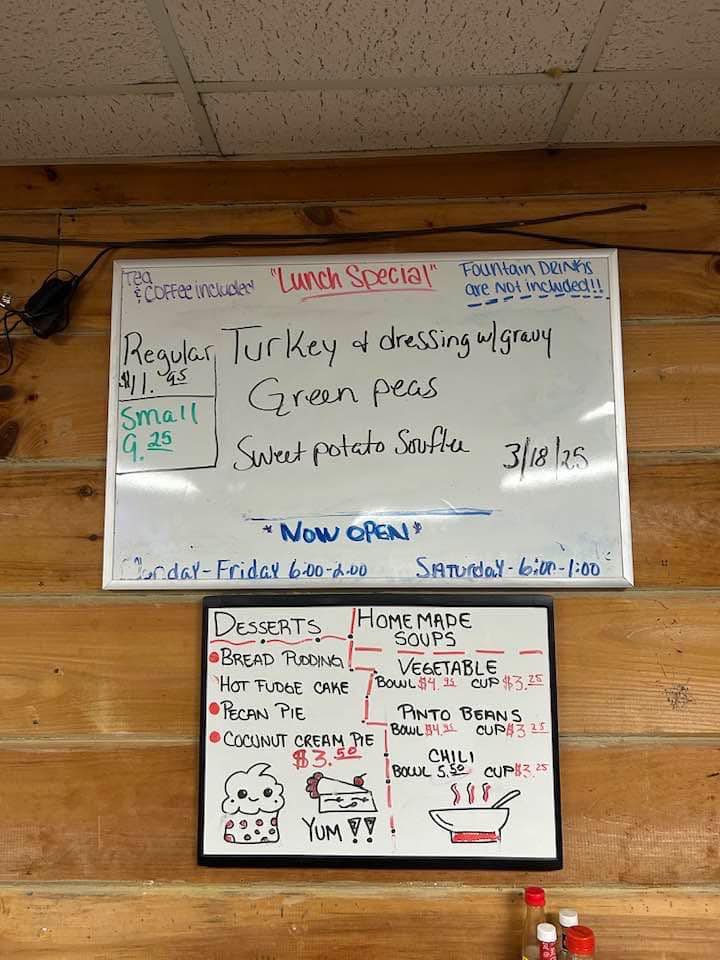 Tea
& Coffee included
"Lunch Special"
Fountain Drinks
are Not included!!
Regular
$11.95
Small
9.25
Turkey & dressing w/gravy
Green peas
Sweet potato Souflee
3/18/25
*NOW OPEN*
Monday-Friday 6:00-2:00
Saturday-6:00-1:00
DESSERTS
BREAD PUDDING
HOT FUDGE CAKE
PECAN PIE
COCUNUT CREAM PIE
$3.50
YUM !!
HOMEMADE
SOUPS
VEGETABLE
BOWL $4.95 CUP $3.25
PINTO BEANS
BOWL $4.95 CUP $3.25
CHILI
BOWL 5.50 CUP $3.25